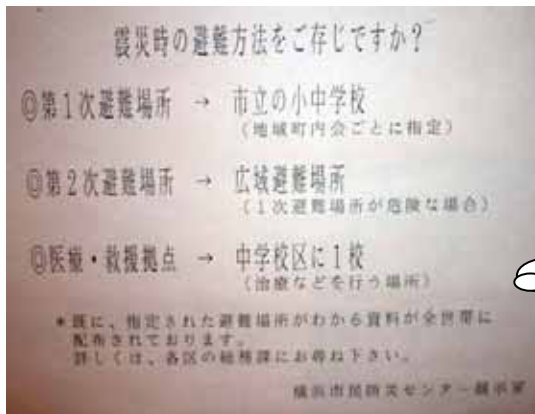 震災時の避難方法をご存じですか?
◎第1次避難場所 → 市立の小中学校
(地域町内会ごとに指定)
◎第2次避難場所 → 広域避難場所
(1次避難場所が危険な場合)
◎医療・救援拠点 → 中学校区に1校
(治療などを行う場所)
*既に、指定された避難場所がわかる資料が全世帯に
配布されております。
詳しくは、各区の総務課にお尋ね下さい。
横浜市民防災センター展示室